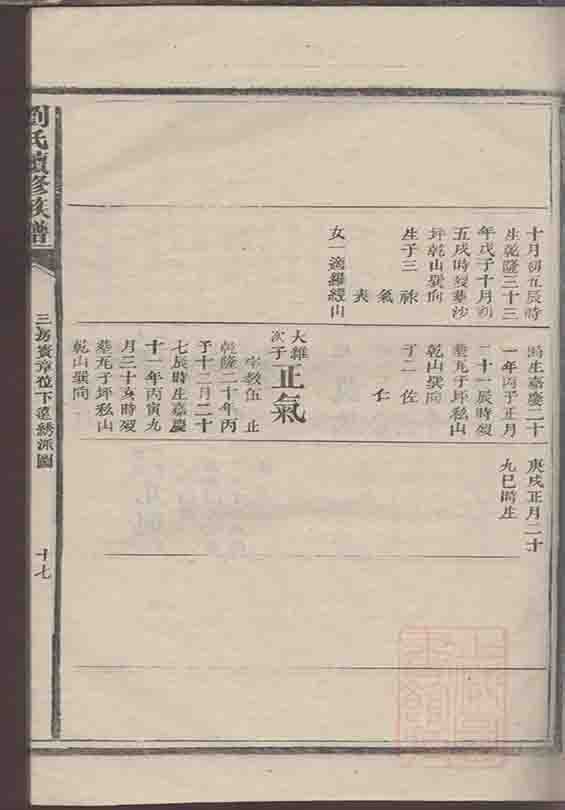 劉氏續修族譜
十月初五辰時
生乾隆三十三
年戊子十月初
五戌時歿葬沙
坪乾山巽向
生子三
祿
氣
表
女一適羅經山
媽生嘉慶二十
一年丙子正月
二十一辰時歿
葬瓦子坪私山
乾山巽向
子一佐
仁
大雒
次子
正氣
字教伍
乾隆二十年丙
子十二月二十
七辰時生嘉慶
十一年丙寅九
月三十亥時歿
葬瓦子坪私山
乾山巽向
庚戌正月二十
九巳時生
三房賓章位下遠綉派圖
十七